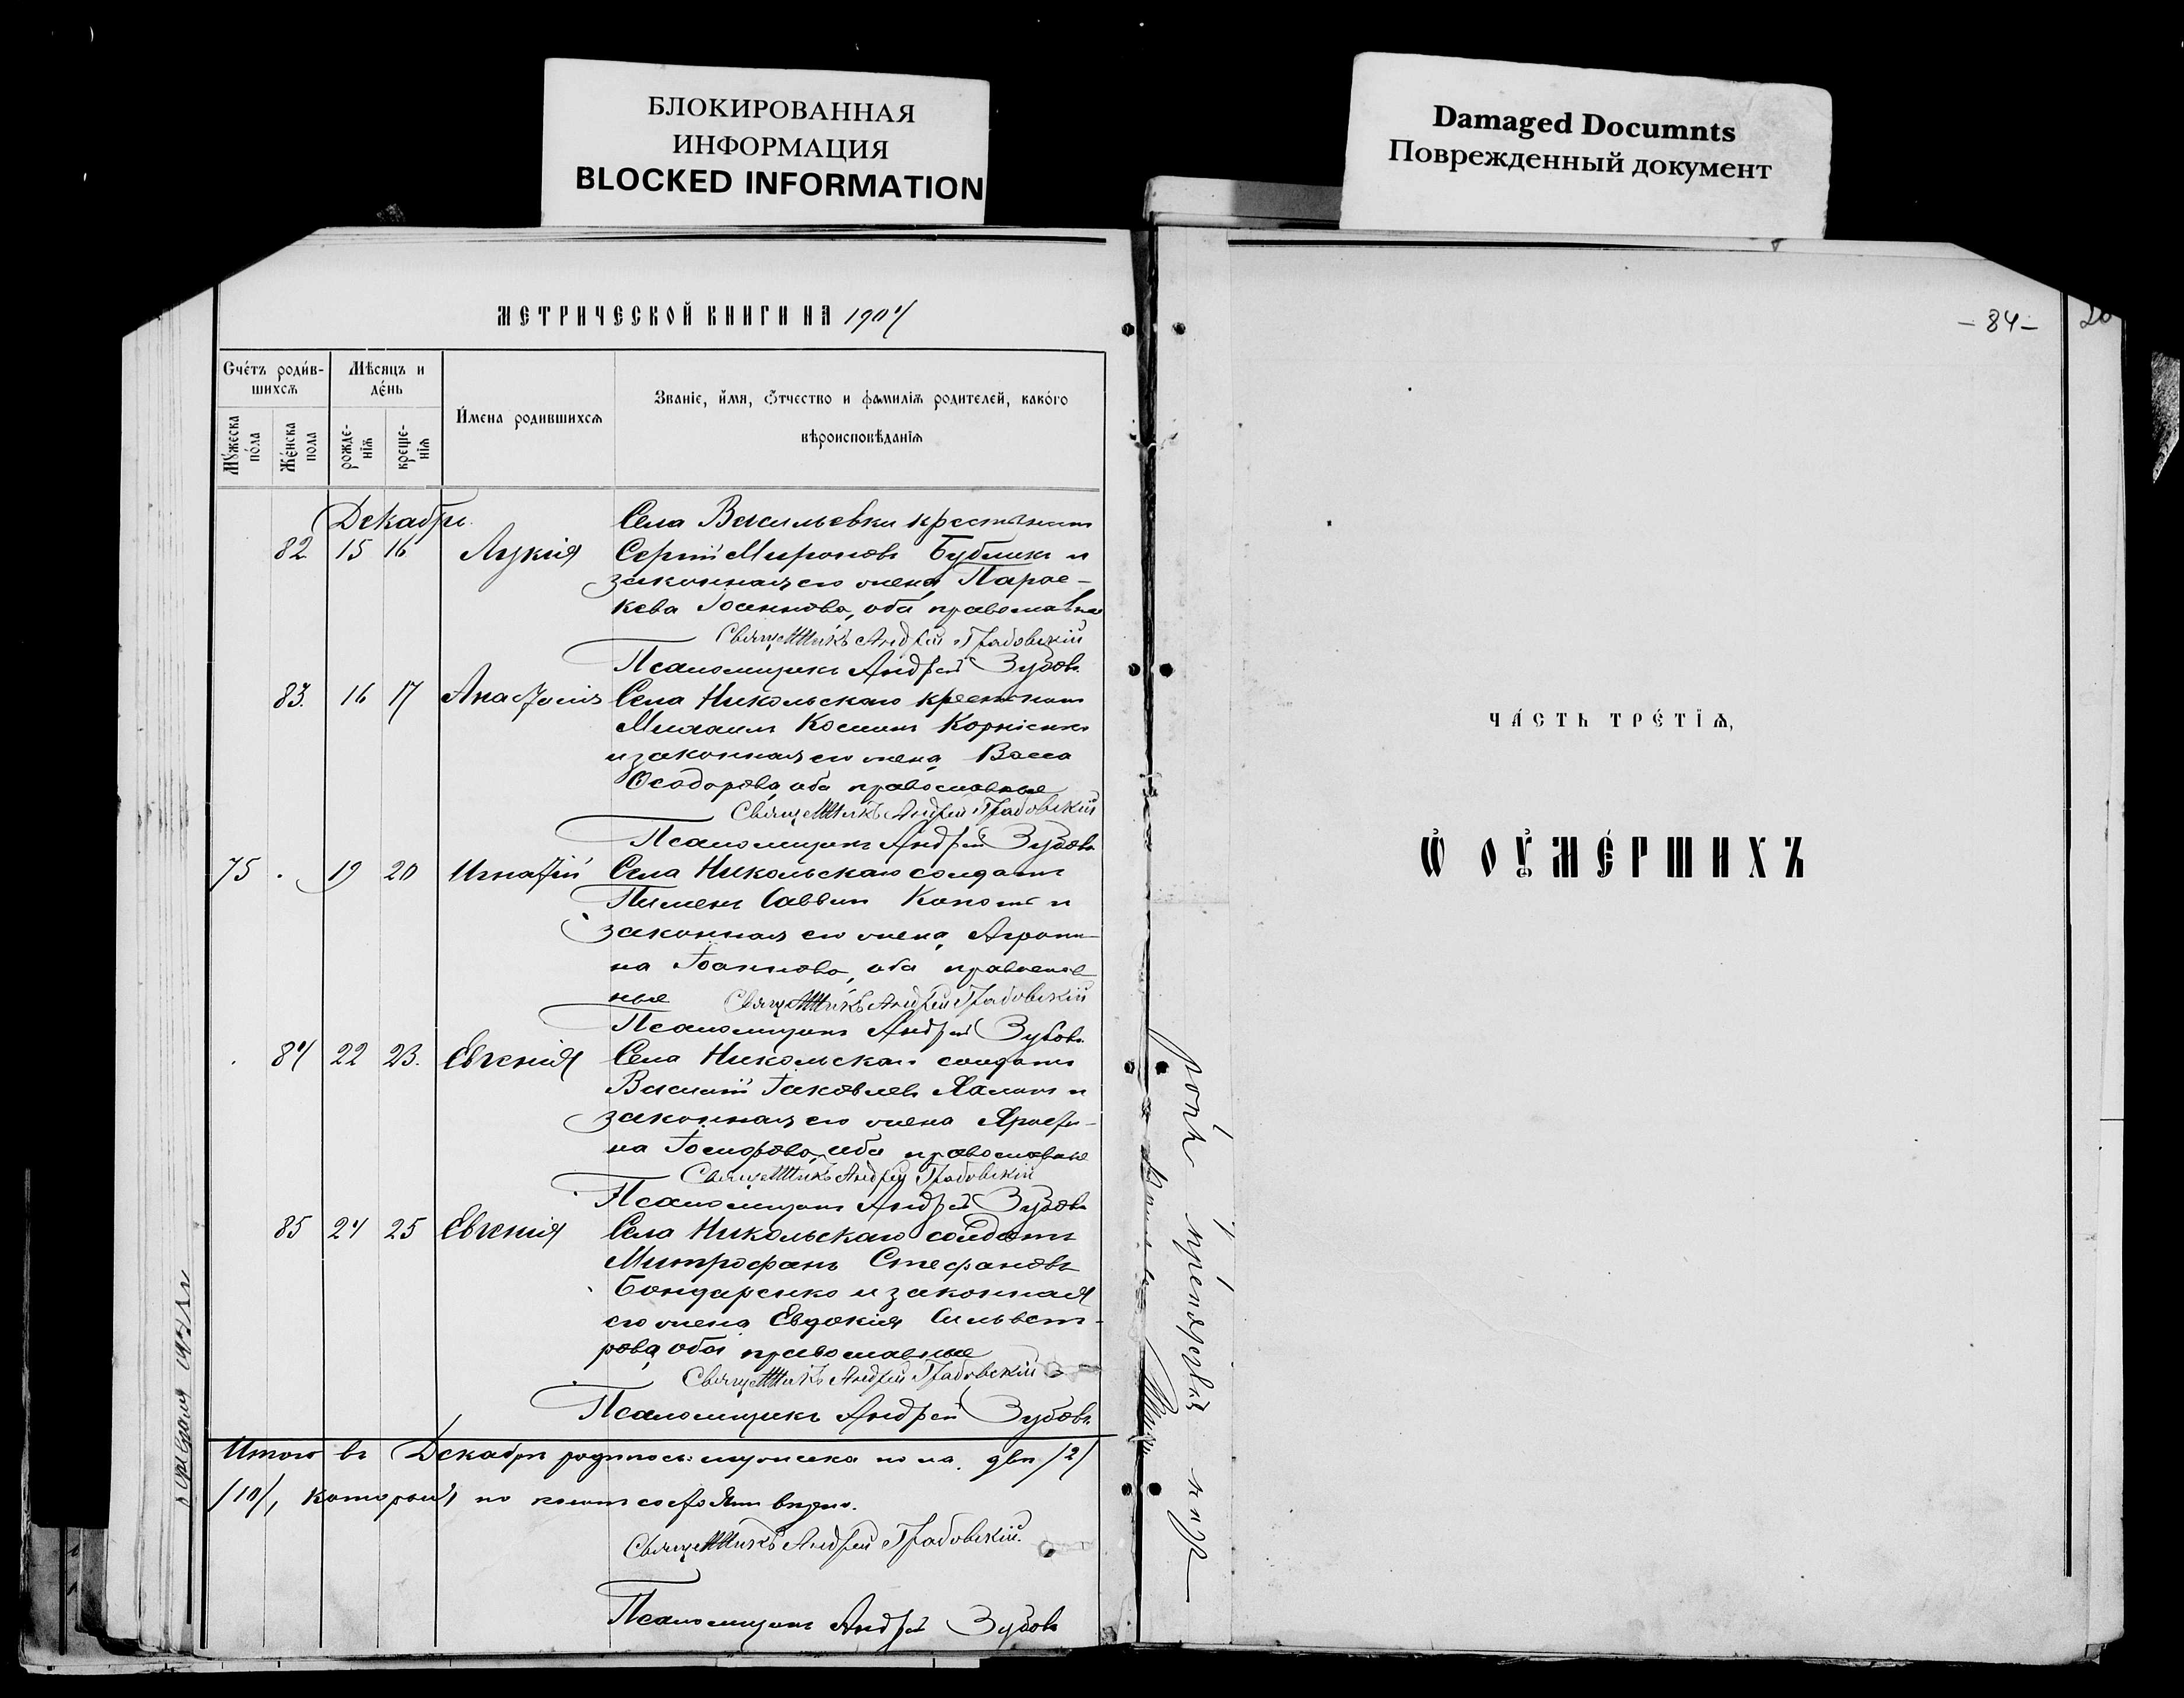 БЛОКИРОВАННАЯ
ИНФОРМАЦИЯ
BLOCKED INFORMATION
Damaged Documnts
Поврежденный документ
МЕТРИЧЕСКОЙ КНИГИ НА 1904
Счетъ родив-
шихсѧ
Мѣсяцъ и
день
Мꙋжеска
пола
Женска
пола
рожде-
нїѧ
креще-
нїѧ
Имена родившихсѧ
Званіе, имя, ѿтчество и фамилїѧ родителей, какого
вѣроисповѣданїѧ
Декабрь
82 15 16 Лукія
Села Васильевки крестьянинъ
Сергій Мироновъ Бубликъ и
законная его жена Парас-
кева Іоаннова, оба православные
Священникъ Андрей Грабовскій
Псаломщикъ Андрей Зубовъ
83. 16 17 Анастасія
Села Никольскаго крестьянинъ
Михаилъ Косминъ Корніенко
и законная его жена Васса
Ѳеодорова, оба православные
Священникъ Андрей Грабовскій
Псаломщикъ Андрей Зубовъ
75 19 20 Игнатій
Села Никольскаго солдатъ
Пименъ Саввинъ и
законная его жена Агрипи-
на Іоаннова, оба православ
ные Священникъ Андрей Грабовскій
Псаломщикъ Андрей Зубовъ
84 22 23. Евгенія
Села Никольскаго солдатъ
Василій Іаковлевъ и
законная его жена
на Іосифова, оба православные
Священникъ Андрей Грабовскій
Псаломщикъ Андрей Зубовъ
85 24 25 Евгенія
Села Никольскаго солдатъ
Митрофанъ Стефановъ
Бондаренко и законная
его жена Евдокія Сильвест-
рова, оба православные
Священникъ Андрей Грабовскій
Псаломщикъ Андрей Зубовъ
Итого въ Декабрѣ родилось: мужеска пола два /2/
/10/,
Священникъ Андрей Грабовскій
Псаломщикъ Андрей Зубовъ
-84-
ЧАСТЬ ТРЕТЇѦ,
Ѡ ОУМЕРШИХЪ